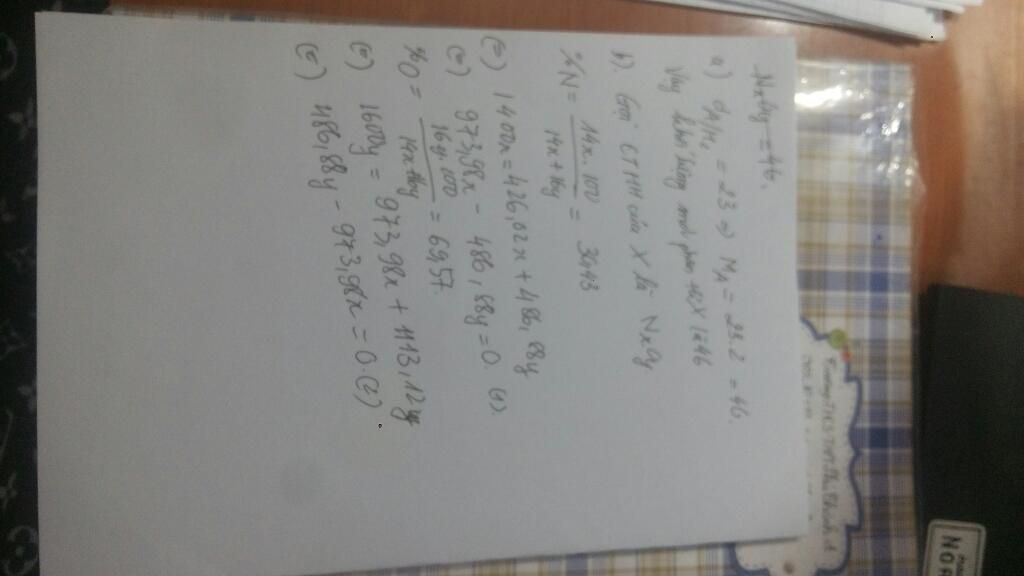 NxOy = 46.
a) dA/H2 = 23 => MA = 23.2 = 46.
Vậy khối lượng mol phân tử X là 46
b). Gọi CTHH của X là NxOy
%N = 14x.100 / 14x + 16y = 30,43
(=) 1400x = 426,02x + 486,88y
(=) 973,98x - 486,88y = 0. (1).
%O = 16y.100 / 14x+16y = 69,57.
(=) 1600y = 973,98x + 1113,12y
(=) 486,88y - 973,98x = 0.(2)
NOF